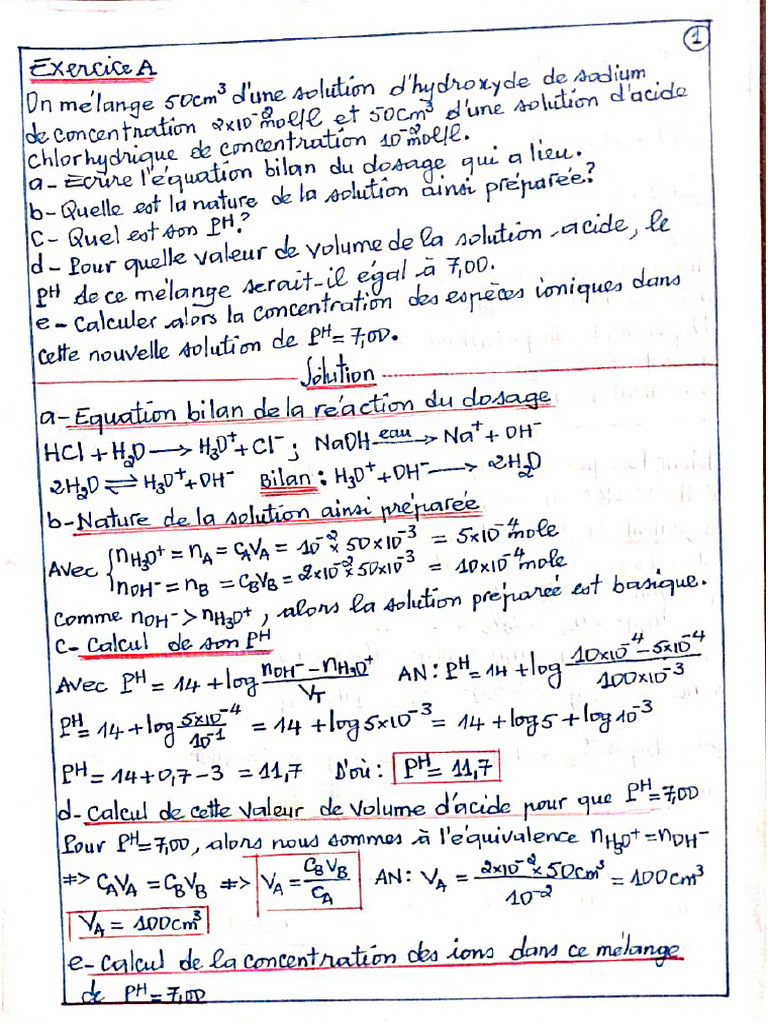 1
Exercice A
On mélange 50cm³ d'une solution d'hydroxyde de sodium
de concentration 2x10⁻² mol/l et 50cm³ d'une solution d'acide
chlorhydrique de concentration 10⁻² mol/l.
a- Ecrire l'équation bilan du dosage qui a lieu.
b- Quelle est la nature de la solution ainsi préparée?
c- Quel est son PH?
d- Pour quelle valeur de volume de la solution-acide, le
PH de ce mélange serait-il égal à 7,00.
e- Calculer alors la concentration des espèces ioniques dans
cette nouvelle solution de PH = 7,00.
Solution
a- Equation bilan de la réaction du dosage
HCl + H₂O ⟶ H₃O⁺ + Cl⁻ ; NaOH —eau→ Na⁺ + OH⁻
2H₂O ⇌ H₃O⁺ + OH⁻ Bilan : H₃O⁺ + OH⁻ ⟶ 2H₂O
b- Nature de la solution ainsi préparée
Avec { nH₃O⁺ = nA = CAVA = 10⁻² x 50x10⁻³ = 5x10⁻⁴ mole
nOH⁻ = nB = CBVB = 2x10⁻² x 50x10⁻³ = 10x10⁻⁴ mole
Comme nOH⁻ > nH₃O⁺, alors la solution préparée est basique.
c- Calcul de son PH
Avec PH = 14 + log (nOH⁻ - nH₃O⁺)/VT AN: PH = 14 + log (10x10⁻⁴ - 5x10⁻⁴)/(100x10⁻³)
PH = 14 + log (5x10⁻⁴)/(10⁻¹) = 14 + log 5x10⁻³ = 14 + log 5 + log 10⁻³
PH = 14 + 0,7 - 3 = 11,7 D'où : PH = 11,7
d- Calcul de cette valeur de volume d'acide pour que PH = 7,00
Pour PH = 7,00, alors nous sommes à l'équivalence nH₃O⁺ = nOH⁻
⇒ CAVA = CBVB ⇒ VA = CBVB/CA AN: VA = (2x10⁻² x 50cm³)/10⁻² = 100cm³
VA = 100cm³
e- Calcul de la concentration des ions dans ce mélange
de PH = 7,00